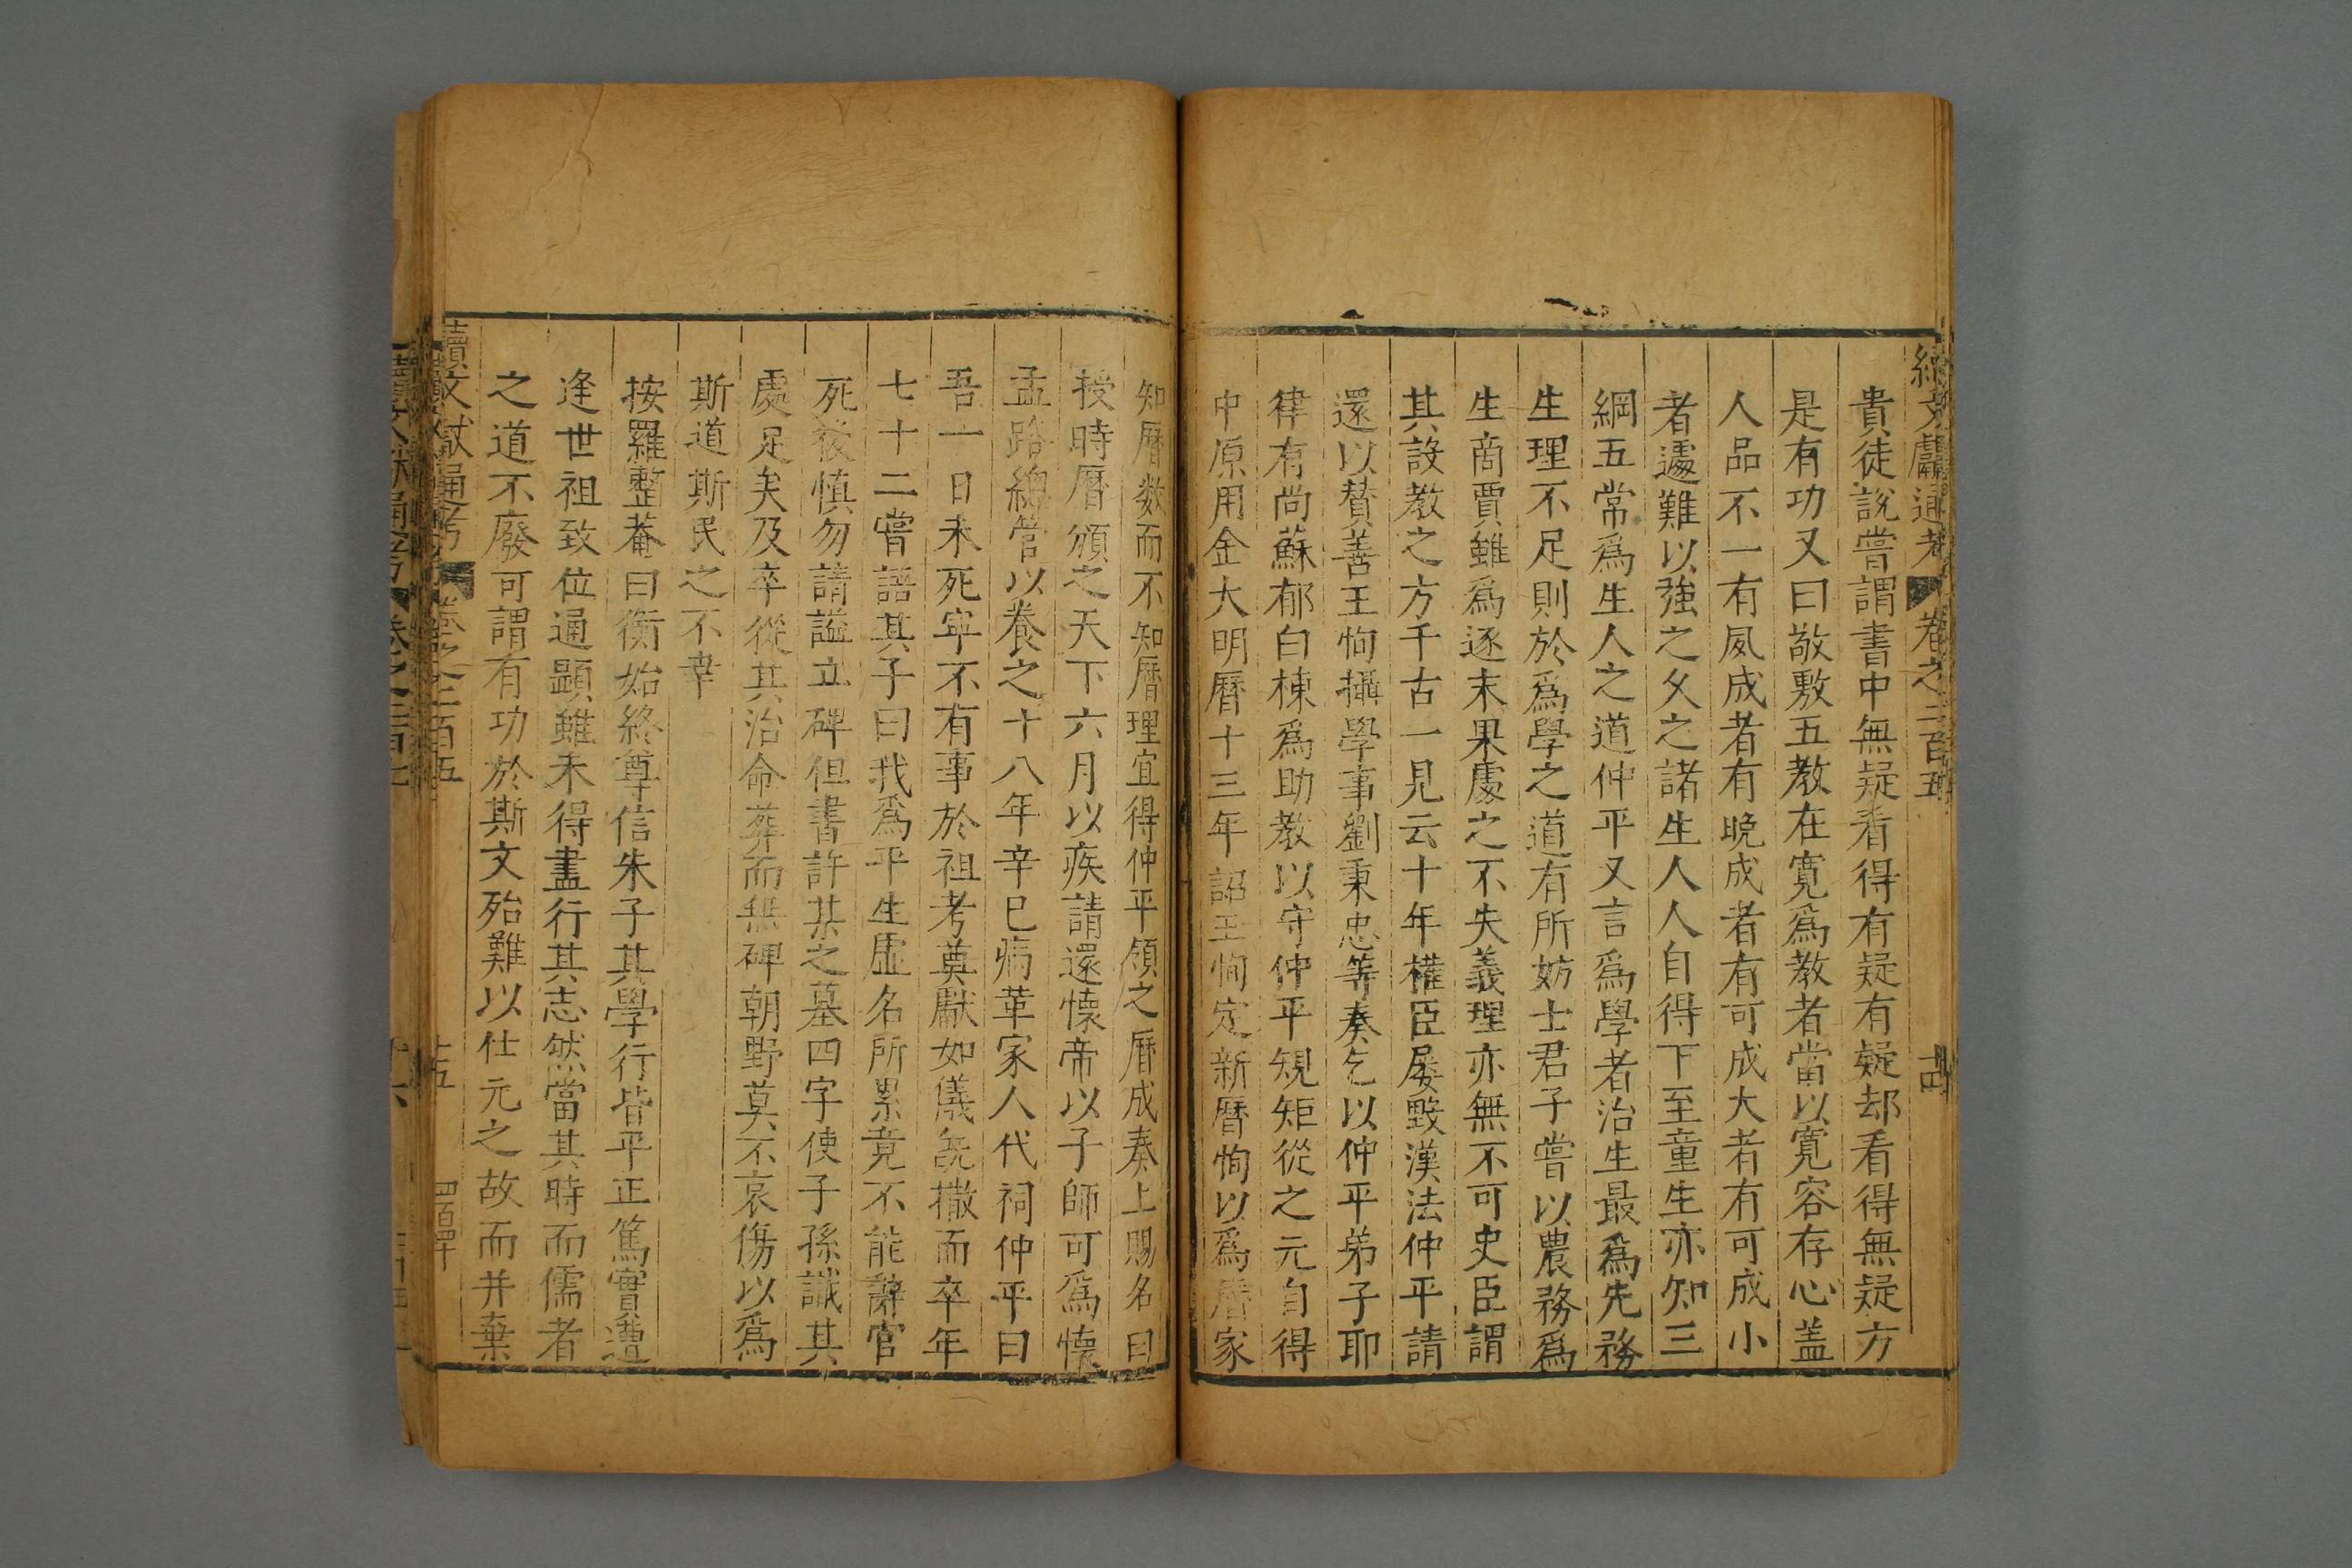 續文獻通考 卷之二百五 十四
貴徒說嘗謂書中無疑看得有疑有疑却看得無疑方
是有功又曰敬敷五教在寬爲教者當以寬容存心盖
人品不一有夙成者有晚成者有可成大者有可成小
者遽難以強之父之諸生人人自得下至童生亦知三
綱五常爲生人之道仲平又言爲學者治生最爲先務
生理不足則於爲學之道有所妨士君子嘗以農務爲
生商賈雖爲逐末果處之不失義理亦無不可史臣謂
其設教之方千古一見云十年權臣屡毀漢法仲平請
還以賛善王恂攝學事劉秉忠等奏乞以仲平弟子耶
律有尚蘇郁白棟爲助教以守仲平規矩從之元自得
中原用金大明曆十三年詔王恂定新曆恂以爲曆家
知曆数而不知曆理宜得仲平領之曆成奏上賜名曰
授時曆頒之天下六月以疾請還懷帝以子師可爲懷
孟路總管以養之十八年辛巳病革家人代祠仲平曰
吾一日未死寧不有事於祖考奠獻如儀旣撤而卒年
七十二嘗語其子曰我爲平生虛名所累竟不能辭官
死後慎勿請謚立碑但書許某之墓四字使子孫識其
處足矣及卒從其治命葬而無碑朝野莫不哀傷以爲
斯道斯民之不幸
按羅整菴曰衡始終尊信朱子其學行皆平正篤實遭
逢世祖致位通顯雖未得盡行其志然當其時而儒者
之道不廢可謂有功於斯文殆難以仕元之故而并棄
續文獻通考 卷之二百五 十五